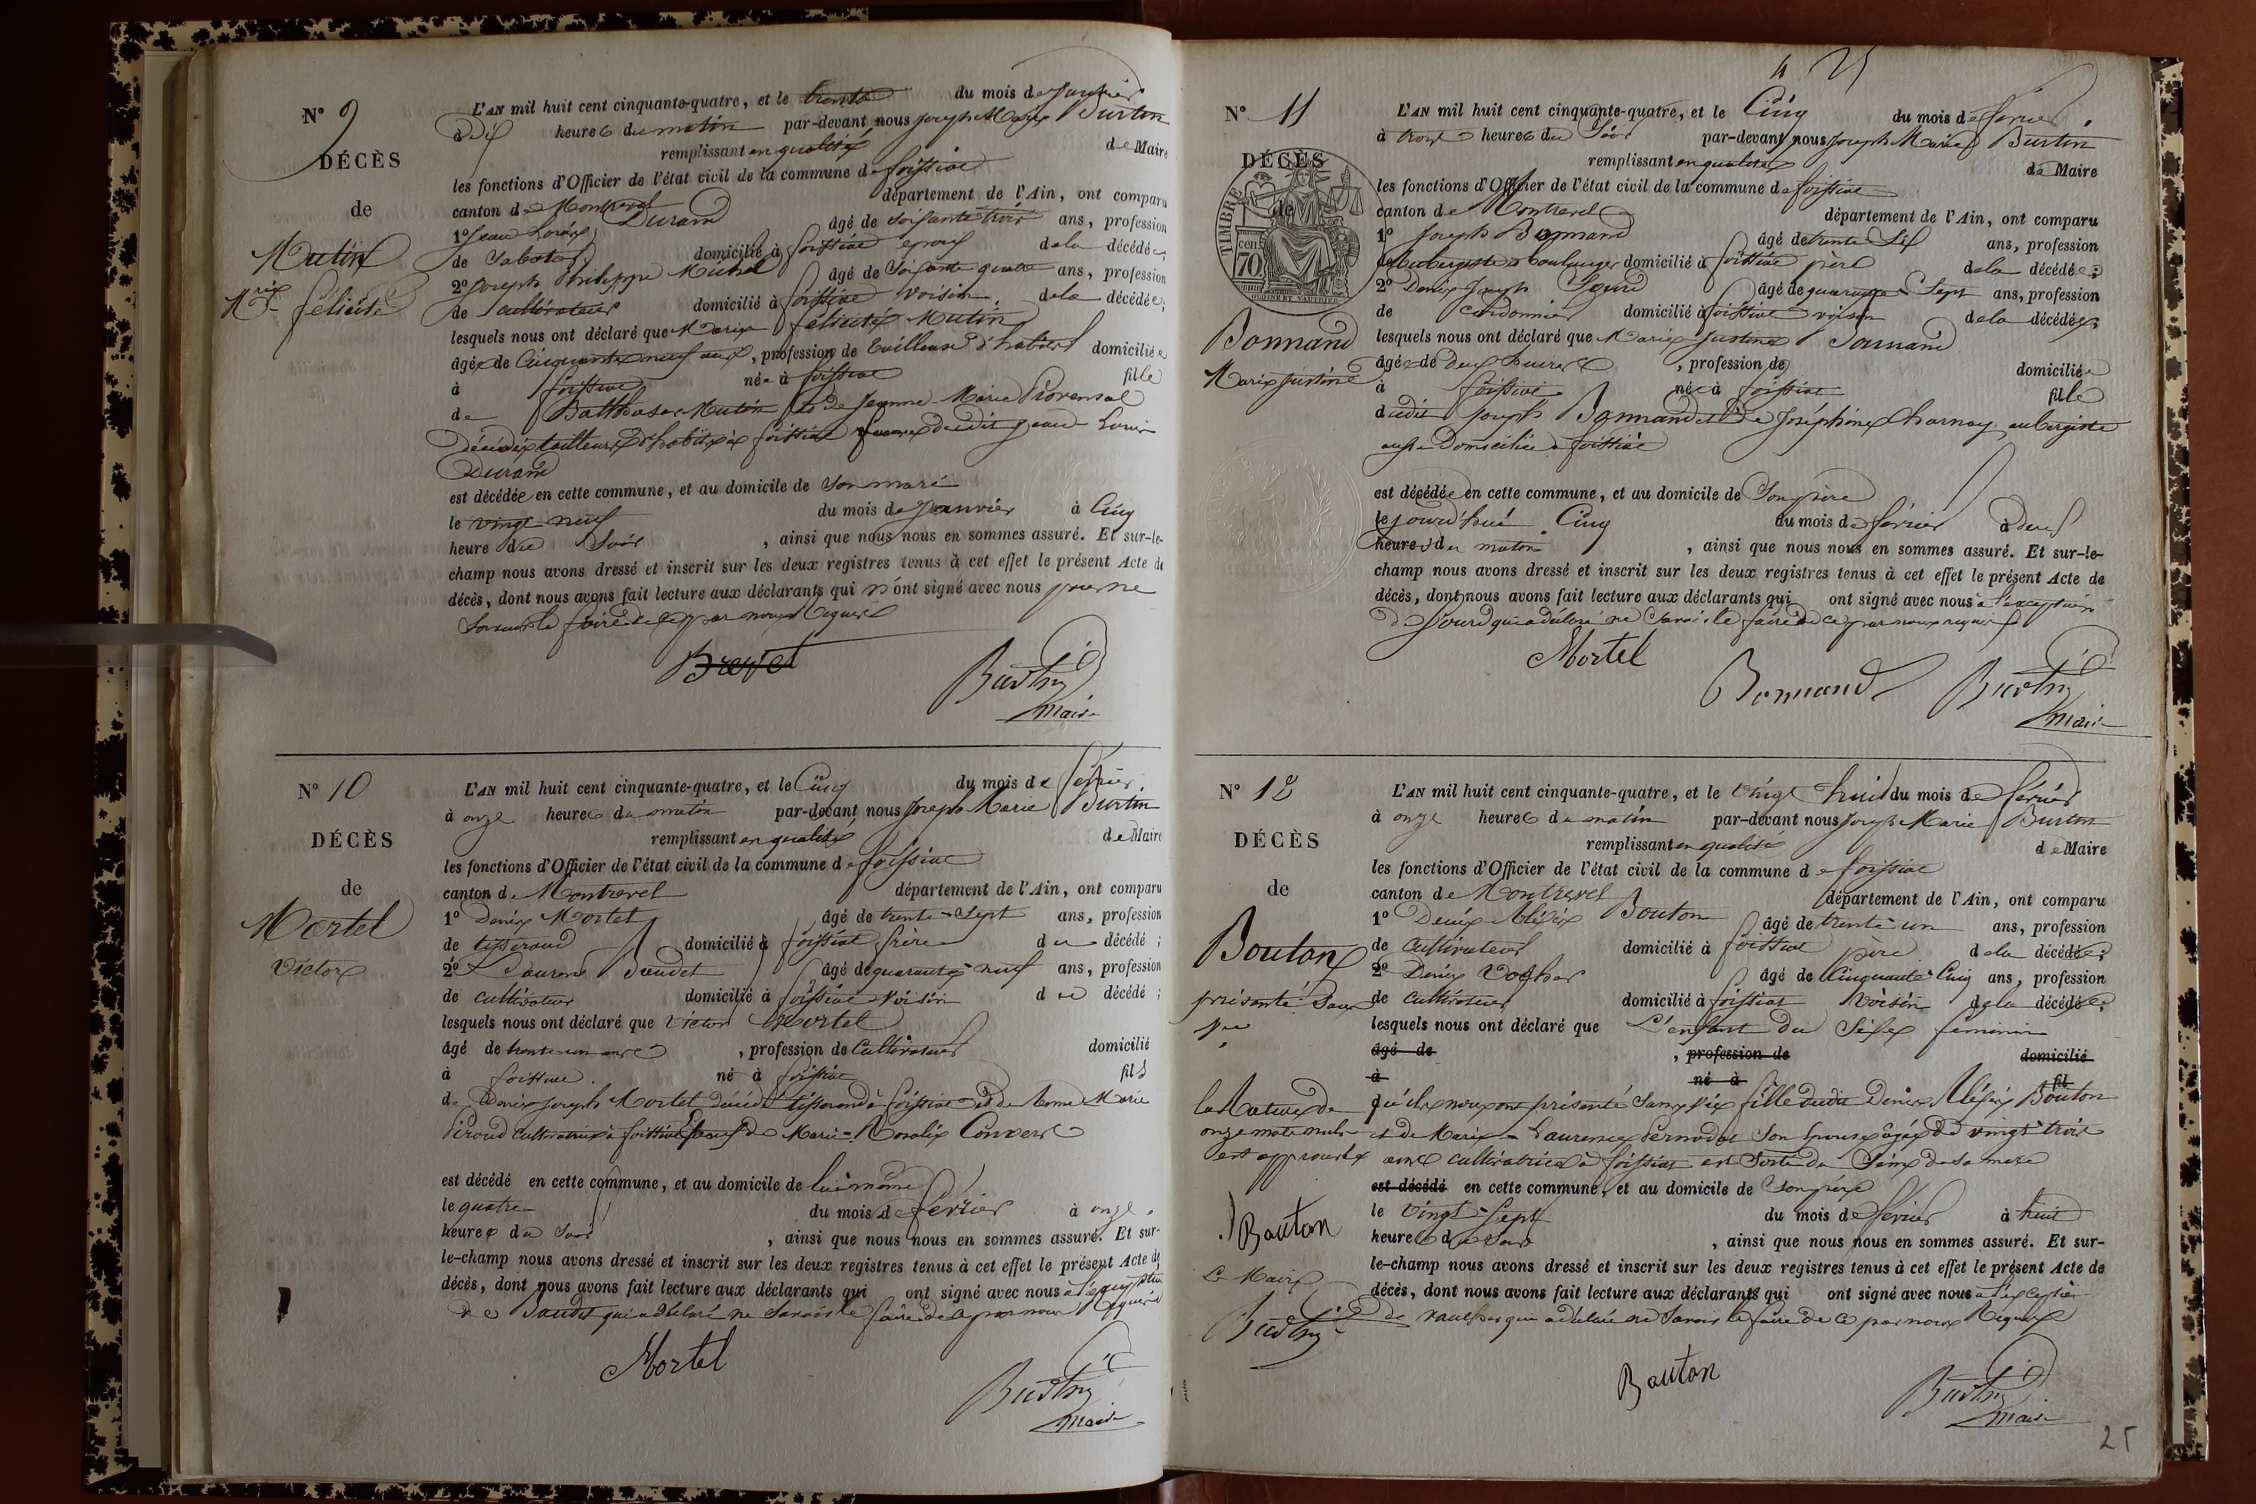 N° 9
DÉCÈS
de
Mutin
Mrie félicité
L'AN mil huit cent cinquante-quatre, et le trente du mois de janvier
à dix heures du matin par-devant nous joseph Marie Burtin
remplissant en qualité de Maire
les fonctions d'Officier de l'état civil de la commune de foissiat
canton de Montrevel département de l'Ain, ont comparu
1° jean Louis Durand âgé de soissante trois ans, profession
de Sabotier domicilié à foissiat epoux de la décédée;
2° joseph philippe Michel âgé de Soissante quatre ans, profession
de cultivateur domicilié à foissiat voisin de la décédée;
lesquels nous ont déclaré que Marie félicité Mutin
âgée de Cinquante neuf ans, profession de tailleuse d'habits domiciliée
à foissiat née à foissiat fille
de Balthasar Mutin et de jeanne Marie Provensal
décédés tailleurs d'habits à foissiat dudit jean Louis
Durand
est décédée en cette commune, et au domicile de Son mari
le vingt neuf du mois de janvier à Cinq
heure du Soir, ainsi que nous nous en sommes assuré. Et sur-le-
champ nous avons dressé et inscrit sur les deux registres tenus à cet effet le présent Acte de
décès, dont nous avons fait lecture aux déclarants qui n'ont signé avec nous pour ne
Savoir le faire de ce par nous requis
Brevet
Burtin
maire
N° 10
DÉCÈS
de
Mortel
Victor
L'AN mil huit cent cinquante-quatre, et le Cinq du mois de février
à onze heures du matin par-devant nous joseph Marie Burtin
remplissant en qualité de Maire
les fonctions d'Officier de l'état civil de la commune de foissiat
canton de Montrevel département de l'Ain, ont comparu
1° Denis Mortel âgé de trente-Sept ans, profession
de tisserand domicilié à foissiat frère du décédé;
2° Laurent Baudet âgé de quarante neuf ans, profession
de cultivateur domicilié à foissiat voisin du décédé;
lesquels nous ont déclaré que Victor Mortel
âgé de trente un ans, profession de Cultivateur domicilié
à foissiat né à foissiat fils
de Denis joseph Mortel décédé tisserand à foissiat et de Marie
Piroud cultivatrice à foissiat Epoux de Marie-Rosalie Convert
est décédé en cette commune, et au domicile de lui même
le quatre du mois de février à onze
heures du Soir, ainsi que nous nous en sommes assuré. Et sur-
le-champ nous avons dressé et inscrit sur les deux registres tenus à cet effet le présent Acte de
décès, dont nous avons fait lecture aux déclarants qui ont signé avec nous à l'exception
de Baudet qui a déclaré ne Savoir le faire de ce par nous requis
Mortel
Burtin
maire
N° 11
DÉCÈS
de
TIMBRE
cen
70
Bonnand
Marie justine
L'AN mil huit cent cinquante-quatre, et le Cinq du mois de février
à trois heures du Soir par-devant nous joseph Marie Burtin
remplissant en qualité de Maire
les fonctions d'Officier de l'état civil de la commune de foissiat
canton de Montrevel département de l'Ain, ont comparu
1° joseph Bonnand âgé de trente Six ans, profession
de aubergiste et boulanger domicilié à foissiat père de la décédée;
2° Denis joseph Sourd âgé de quarante Sept ans, profession
de cordonnier domicilié à foissiat voisin de la décédée;
lesquels nous ont déclaré que Marie justine Bonnand
âgée de deux heures, profession de domiciliée
à foissiat née à foissiat fille
dudit joseph Bonnand et de joséphine Charnay aubergiste
aussi Domiciliée à foissiat
est décédée en cette commune, et au domicile de Son père
le jourd'hui Cinq du mois de février à deux
heures du matin, ainsi que nous nous en sommes assuré. Et sur-le-
champ nous avons dressé et inscrit sur les deux registres tenus à cet effet le présent Acte de
décès, dont nous avons fait lecture aux déclarants qui ont signé avec nous à l'exception
de Sourd qui a déclaré ne Savoir le faire de ce par nous requis
Mortel
Bonnand
Burtin
maire
N° 12
DÉCÈS
de
Bouton
présenté Sans
vie
la Rature de
onze mots nuls
est approuvée
Bouton
Le Maire
Burtin
L'AN mil huit cent cinquante-quatre, et le vingt huit du mois de février
à onze heures du matin par-devant nous joseph Marie Burtin
remplissant en qualité de Maire
les fonctions d'Officier de l'état civil de la commune de foissiat
canton de Montrevel département de l'Ain, ont comparu
1° Denis Alexis Bouton âgé de trente-un ans, profession
de Cultivateur domicilié à foissiat père de la décédée;
2° Denis âgé de Cinquante Cinq ans, profession
de Cultivateur domicilié à foissiat voisin de la décédée;
lesquels nous ont déclaré que L'enfant du Sexe féminin
âgé de, profession de domicilié
à né à fil
qu'ils nous ont présenté Sans vie fille dudit Denis Alexis Bouton
et de Marie-Laurence Pernodat Son épouse âgée de vingt trois
ans cultivatrice à foissiat est Sorti du Sein de Sa mere
est décédé en cette commune, et au domicile de Son père
le vingt-Sept du mois de février à huit
heures du Soir, ainsi que nous nous en sommes assuré. Et sur-
le-champ nous avons dressé et inscrit sur les deux registres tenus à cet effet le présent Acte de
décès, dont nous avons fait lecture aux déclarants qui ont signé avec nous à l'exception
de qui a déclaré ne Savoir le faire de ce par nous Requis
Bouton
Burtin
maire
25